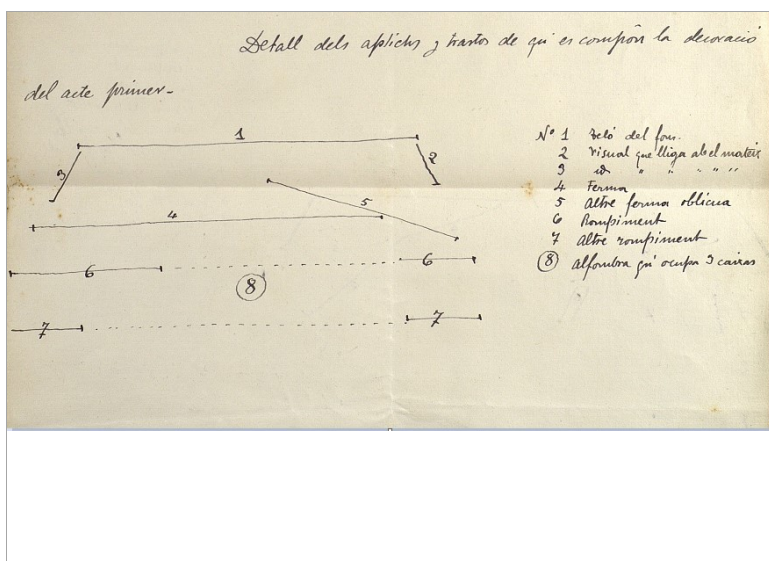 Detall dels aplichs y trastos de qu'es compón la decoració
del acte primer-
1
3
2
5
4
6
6
8
7
7
Nº 1 Teló del fons.
2 Visual que lliga ab el mateix
3 id " " " " "
4 Ferma
5 Altre ferma oblicua
6 Rompiment
7 Altre rompiment
8 Alfombra qu'ocupa 3 caixas